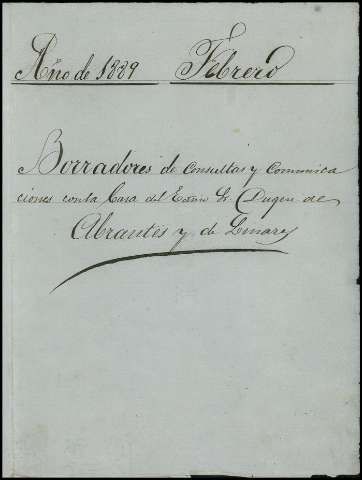 Año de 1889 Febrero
Borradores de Consultas y Comunica
ciones con la Casa del Exmo Sr Duque de
Abrantes y de Linares